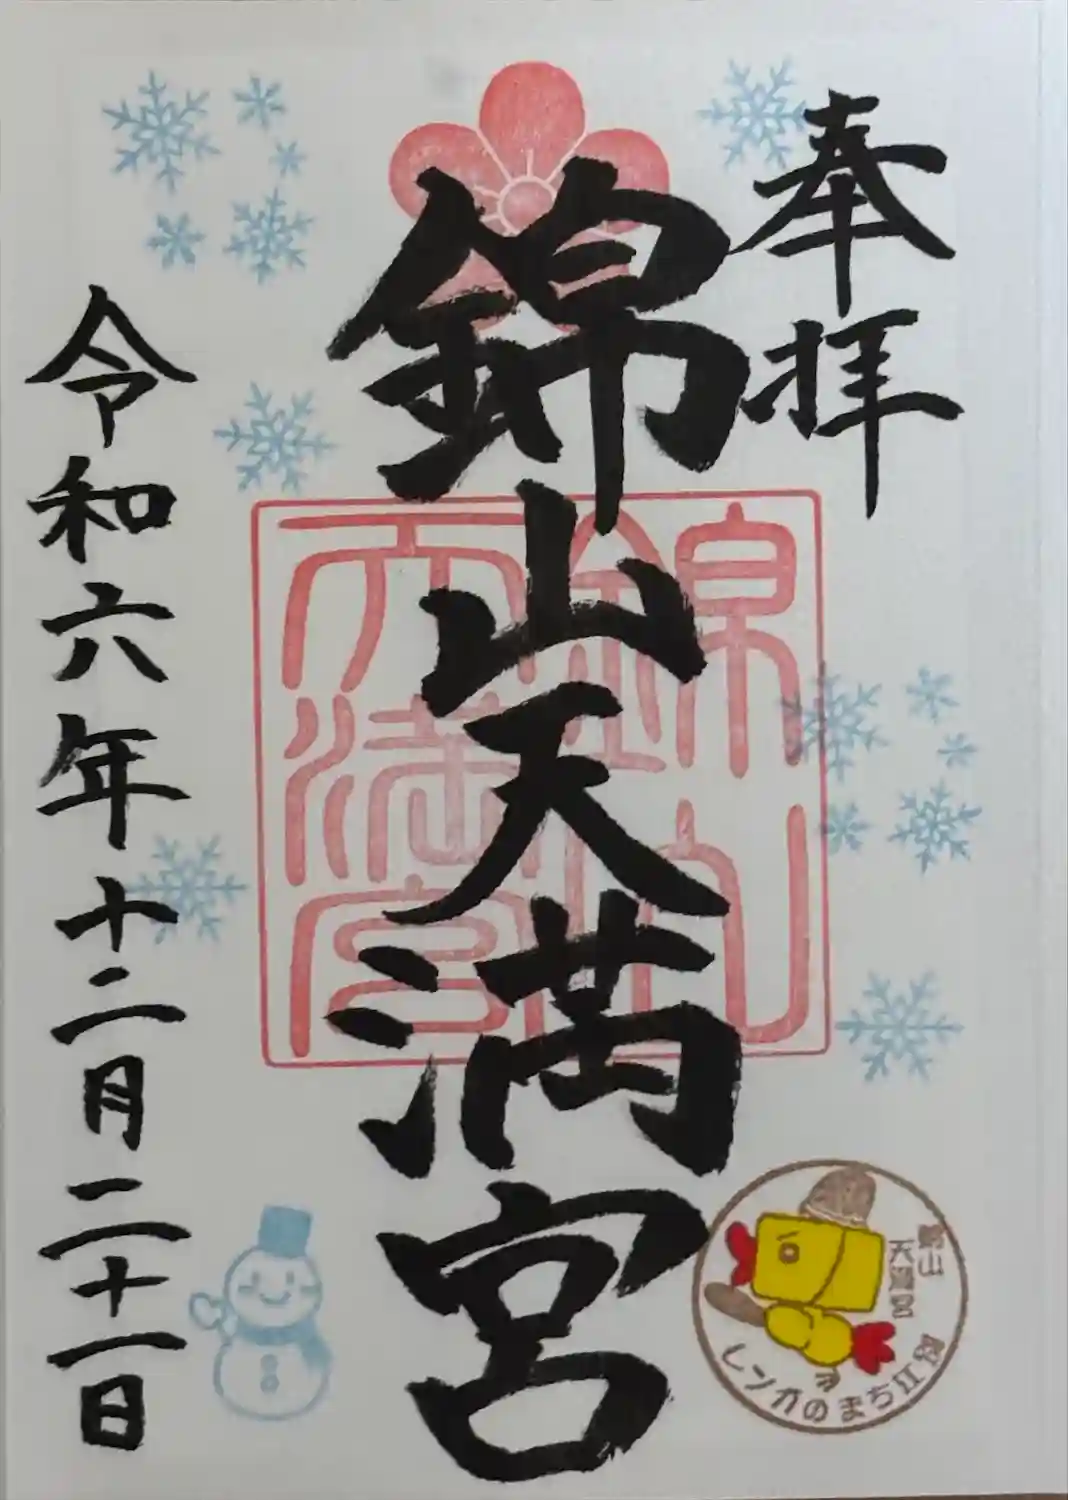 奉拝
錦山天満宮
錦山
天満宮
令和六年十二月二十一日
錦山
天満宮
レンガのまち江別